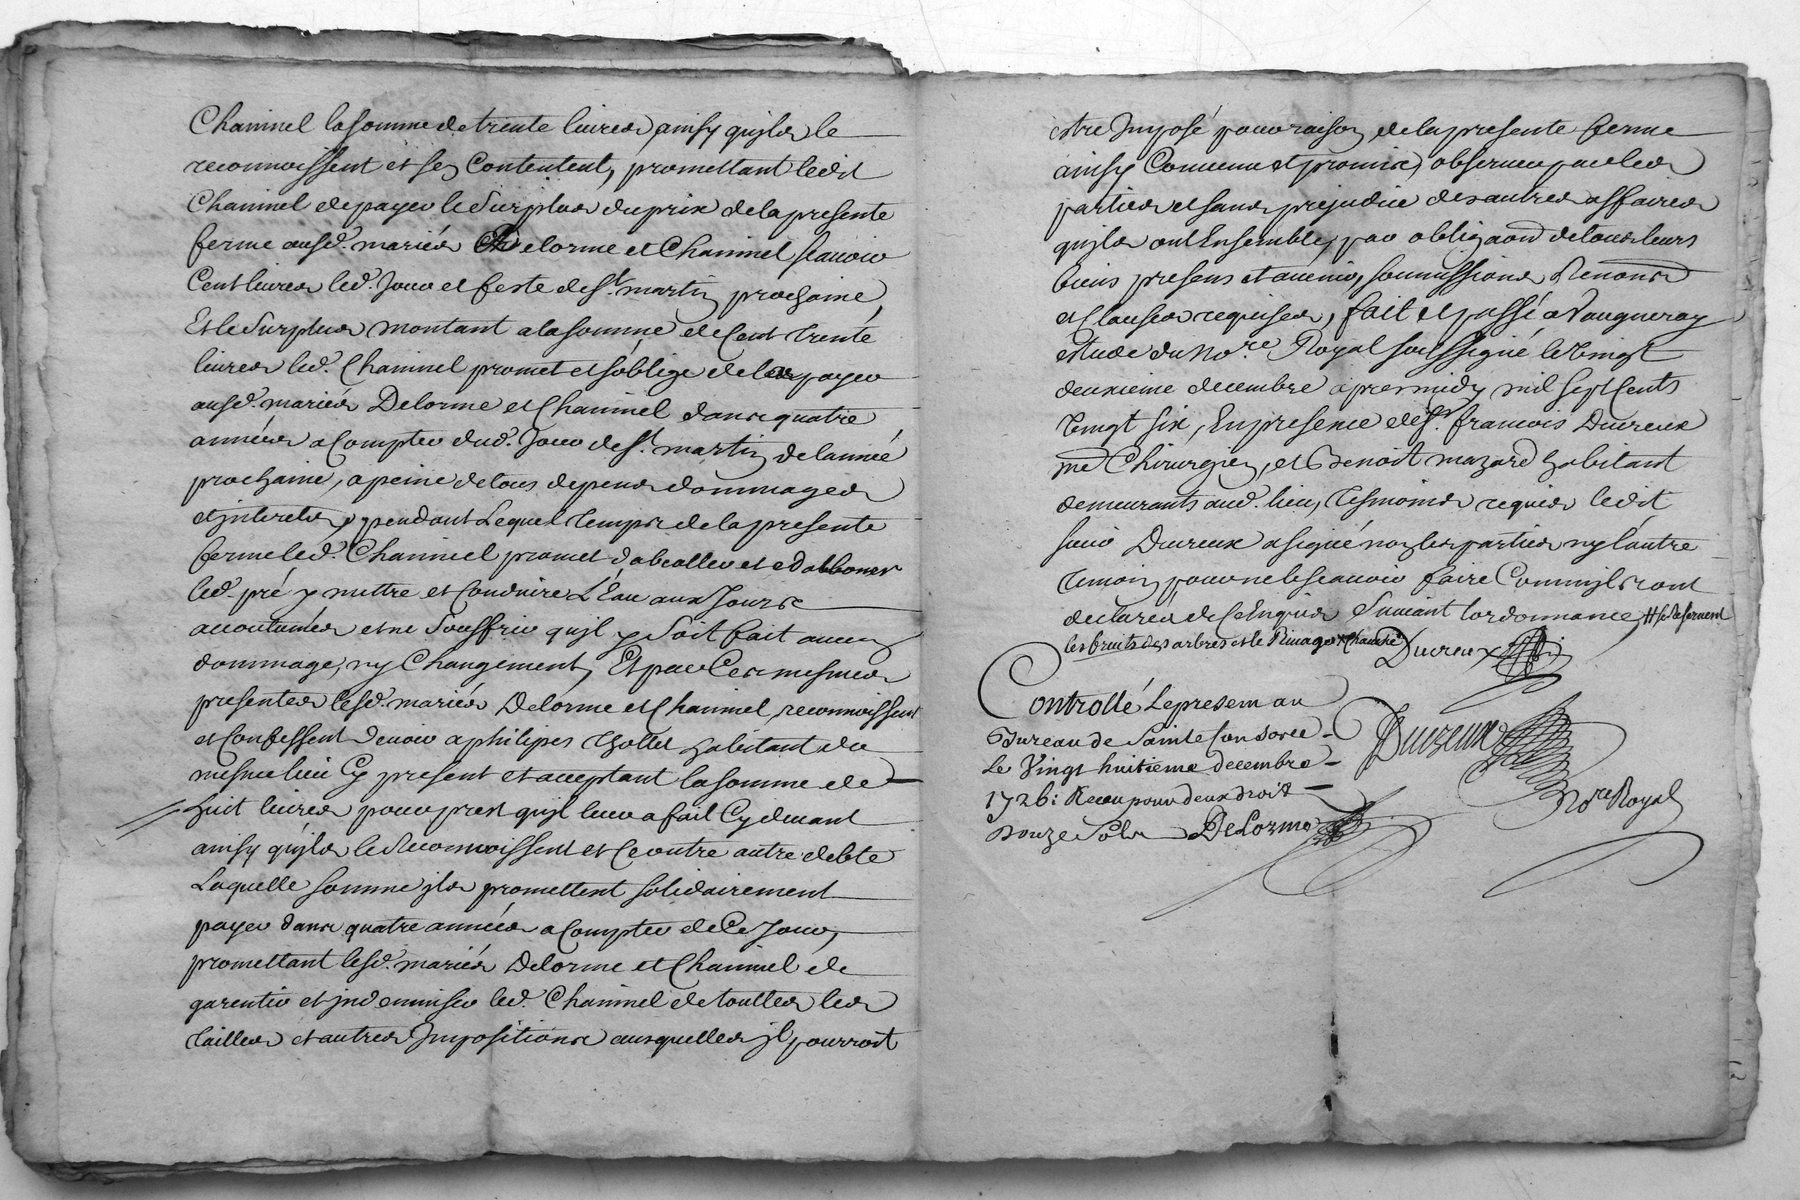 Chaninel la somme de trente livres, ainsy quils le
reconnoissent et sen Contentent, promettant ledit
Chaninel de payer le Surplus du prix de la presente
ferme ausd. mariés Delorme et Chaninel scavoir
Cent livres led. Jour et feste de St. martin prochaine,
Et le Surplus montant a la somme de Cent trente
livres led. Chaninel promet et soblige de les payer
ausd. mariés Delorme et Chaninel dans quatre
années a Compter dud. Jour de St. martin de lannée
prochaine, a peine de tous depens dommages
et interets, pendant Lequel temps de la presente
ferme led. Chaninel promet et dabonner
led. pré y mettre et Conduire L'Eau aux Jours
accoutumés et ne Souffrir quil y Soit fait aucun
dommage, ny Changement, Et par Ces mesmes
presentes lesd. mariés Delorme et Chaninel, reconnoissent
et Confessent devoir a philipes thollet habitant du
mesme lieu Cy present et acceptant la somme de
huit livres pour prest quil leur a fait Cy devant
ainsy quils le Reconnoissent et Ce outre autre debte
Laquelle somme ils promettent solidairement
payer dans quatre années a Compter de Ce Jour,
promettant lesd. mariés Delorme et Chaninel de
garentir et indemniser led. Chaninel de toutles les
tailles et autres Impositions ausquelles il pourroit
estre Imposé pour raison de la presente ferme
ainsy Convenu et promis, observer par les
parties et sans prejudice des autres affaires
quils ont Ensemble, par obligaon de tous leurs
biens presens et avenir, soumissions Renonce
et Clauses requises, fait et passé a Vaugneray
estude du Nore. Royal soussigné le Vingt
deuxieme decembre apres midy mil sept Cents
Vingt six, En presence de Sr. francois Ducreux
me Chirurgien, et Benoit mazard habitant
demeurants aud. lieu, tesmoins requis ledit
sieur Ducreux a signé non les parties ny l'autre
temoin pour ne le scavoir faire Comm'ils ont
declarés de Ce Enquis Suivant lordonnance,
les fruits des arbres et le
Ducreux
Controllé Le present au
Bureau de Sainte
Le Vingt huitieme decembre
1726: Receu pour deux droit
Douze Sols DeLorme
Ducreux
Nore Royal